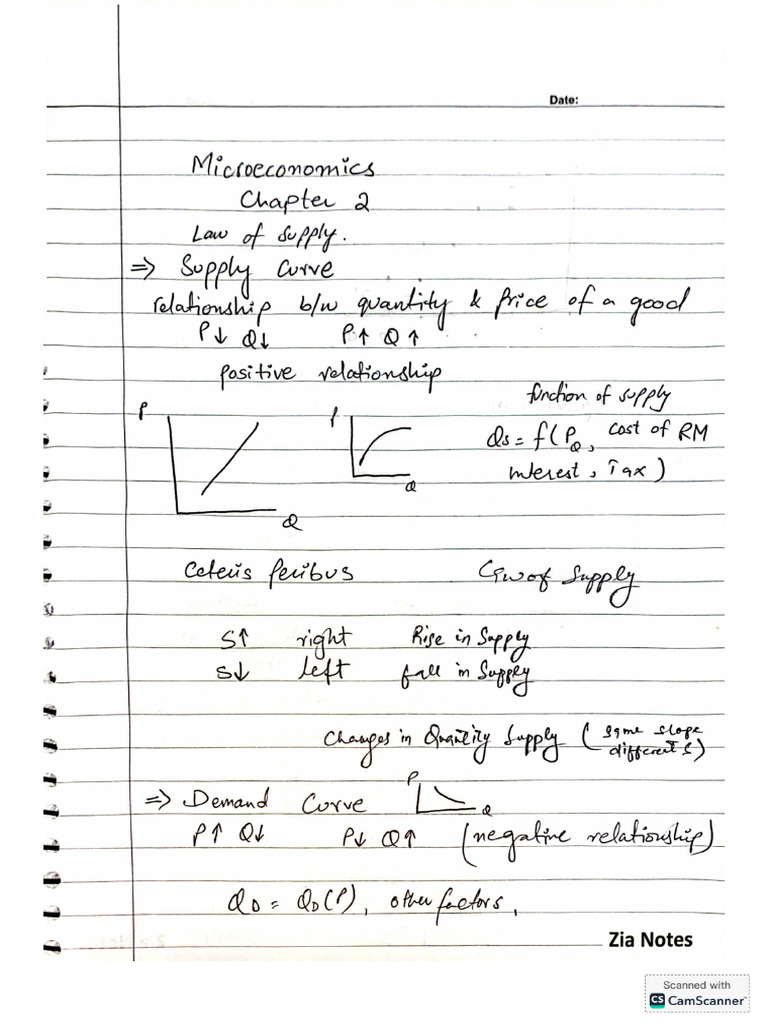 Date:
Microeconomics
Chapter 2
Law of Supply.
⇒ Supply Curve
relationship b/w quantity & Price of a good
P↓ Q↓ P↑ Q↑
positive relationship
function of supply
Qs = f(P_Q, cost of RM
interest, Tax)
P
Q
P
Q
Ceteris Peribus Law of Supply
S↑ right Rise in Supply
S↓ left fall in Supply
Changes in Quantity Supply (same slope
different S)
⇒ Demand Curve
P
Q
P↑ Q↓ P↓ Q↑ (negative relationship)
Q_D = Q_D(P), other factors,
Zia Notes
Scanned with
CS CamScanner